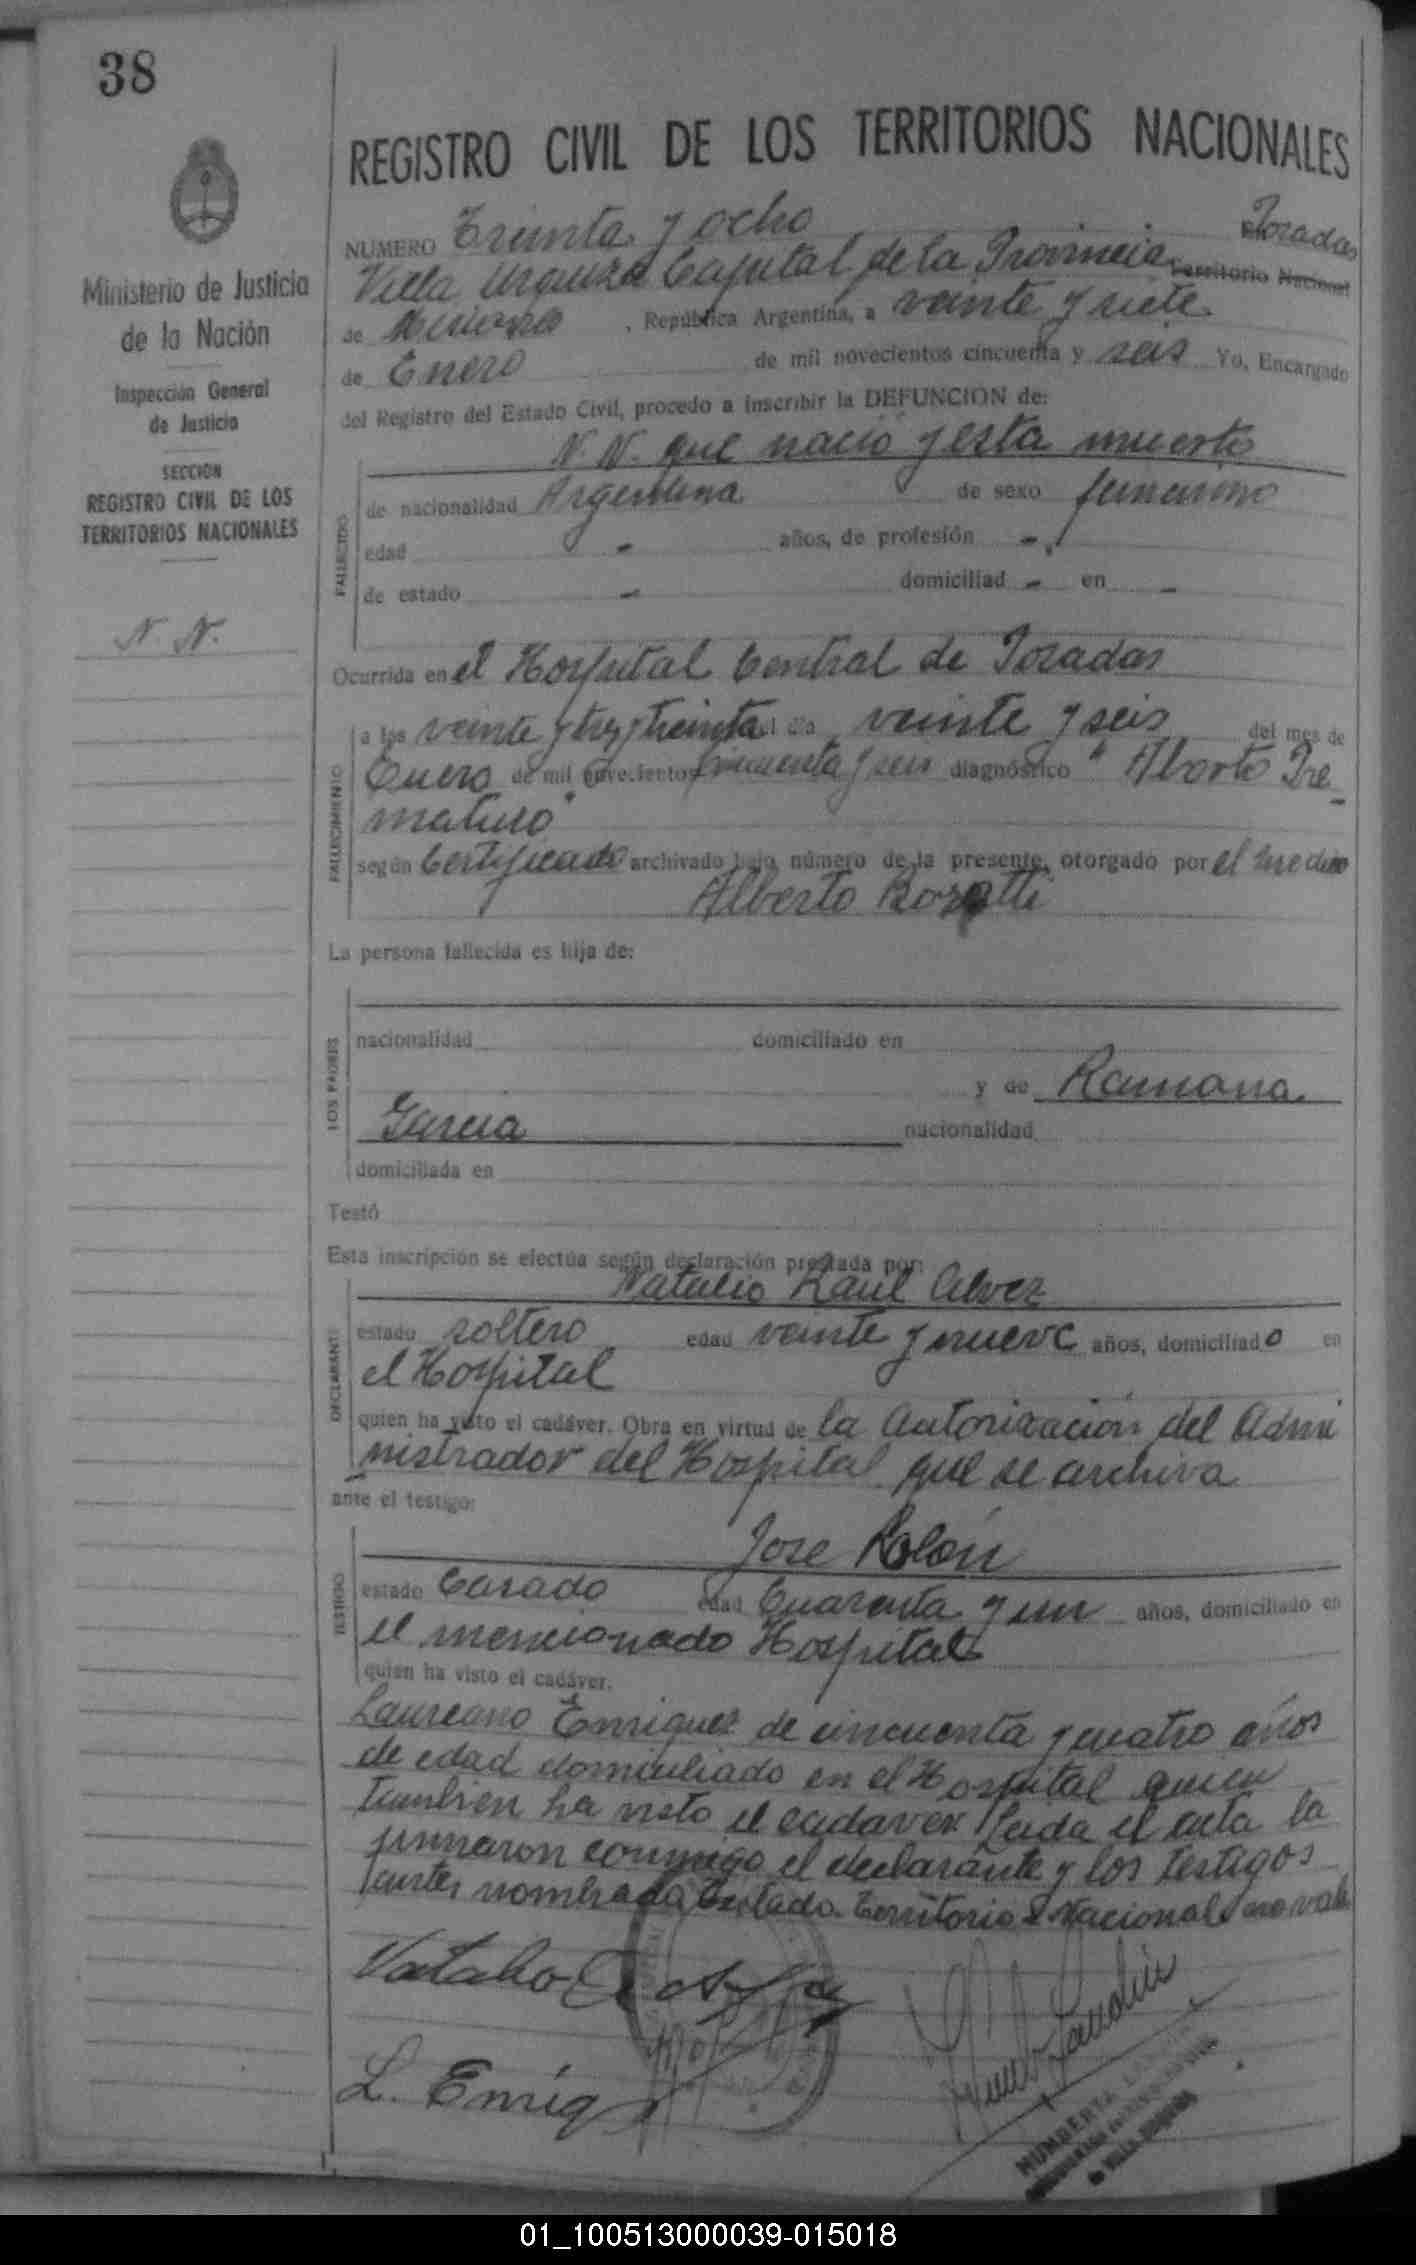 38
REGISTRO CIVIL DE LOS TERRITORIOS NACIONALES
Ministerio de Justicia
de la Nación
Inspección General
de Justicia
SECCION
REGISTRO CIVIL DE LOS
TERRITORIOS NACIONALES
N. N.
NUMERO Treinta y ocho Posadas
Villa Urquiza Capital de la Provincia Territorio Nacional
de Misiones, República Argentina, a veinte y siete
de Enero de mil novecientos cincuenta y seis Yo, Encargado
del Registro del Estado Civil, procedo a inscribir la DEFUNCION de:
N. N. que nacio y esta muerto
FALLECIDO
de nacionalidad Argentina de sexo femenino
edad - años, de profesión -,
de estado - domiciliad - en -
Ocurrida en el Hospital Central de Posadas
FALLECIMIENTO
a las veinte y tres y treinta del día veinte y seis del mes de
Enero de mil novecientos cincuenta y seis diagnóstico "Aborto Pre-
maturo"
según Certificado archivado bajo número de la presente, otorgado por el medico
Alberto
La persona fallecida es hija de:
LOS PADRES
nacionalidad domiciliado en
y de Ramona
Garcia nacionalidad
domiciliada en
Testó
Esta inscripción se efectúa según declaración prestada por:
Natalio Raul Alvez
DECLARANTE
estado soltero edad veinte y nueve años, domiciliado en
el Hospital
quien ha visto el cadáver. Obra en virtud de la Autorización del Admi
nistrador del Hospital que se archiva
ante el testigo:
Jose Rolón
TESTIGO
estado Casado edad Cuarenta y un años, domiciliado en
el mencionado Hospital
quien ha visto el cadáver.
Laureano Enriquez de cincuenta y cuatro años
de edad domiciliado en el Hospital quien
tambien ha visto el cadaver Leida el acta la
firmaron conmigo el declarante y los testigos
antes nombrado Territorio Nacional no vale
Natalio
L. Enriq
HUMBERTO
01_100513000039-015018